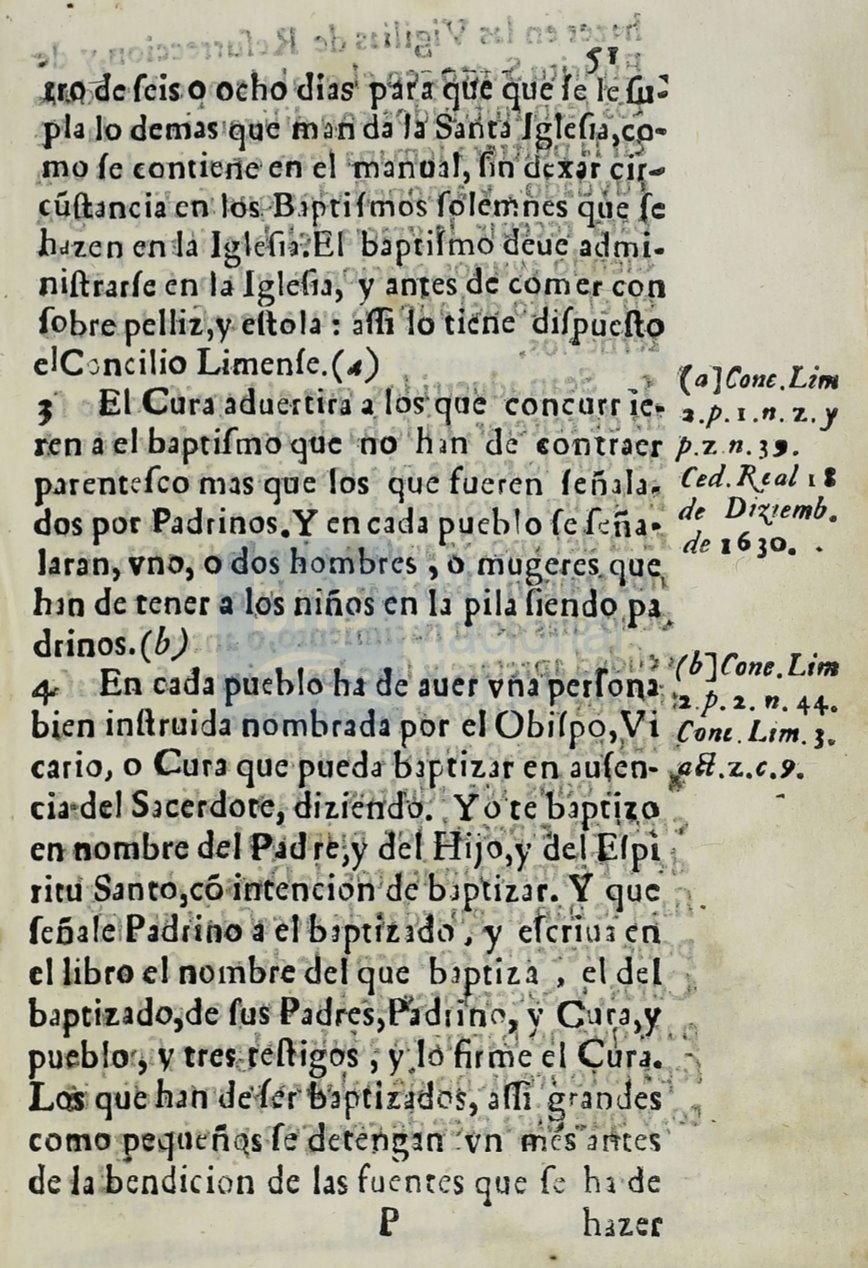 51
tro de ſeis o ocho dias para que que ſe le ſu-
pla lo demas que manda la Santa Igleſia,co-
mo ſe contiene en el manual, ſin dexar cir-
cũſtancia en los Baptiſmos ſolemnes que ſe
hazen en la Igleſia.El baptiſmo deue admi-
niſtrarſe en la Igleſia, y antes de comer con
ſobre pelliz,y eſtola : aſſi lo tiene diſpueſto
el Concilio Limenſe.(a)
3 El Cura aduertira a los que concurrie-
ren a el baptiſmo que no han de contraer
parenteſco mas que los que fueren ſeñala-
dos por Padrinos.Y en cada pueblo ſe ſeña-
laran, vno, o dos hombres , o mugeres que
han de tener a los niños en la pila ſiendo pa
drinos.(b)
4 En cada pueblo ha de auer vna perſona
bien inſtruida nombrada por el Obiſpo,Vi
cario, o Cura que pueda baptizar en auſen-
cia del Sacerdote, diziendo. Yo te baptizo
en nombre del Padre,y del Hijo,y del Eſpi
ritu Santo,cõ intencion de baptizar. Y que
ſeñale Padrino a el baptizado , y eſcriua en
el libro el nombre del que baptiza , el del
baptizado,de ſus Padres,Padrino, y Cura,y
pueblo , y tres teſtigos , y lo firme el Cura.
Los que han de ſer baptizados, aſſi grandes
como pequeños ſe detengan vn mes antes
de la bendicion de las fuentes que ſe ha de
P hazer
(a] Conc.Lim
2.p.1.n.2.y
p.2 n.39.
Ced.Real 18
de Diziemb.
de 1630.
(b] Conc.Lim
2.p.2.n.44.
Conc.Lim.3.
act.2.c.9.
nacional